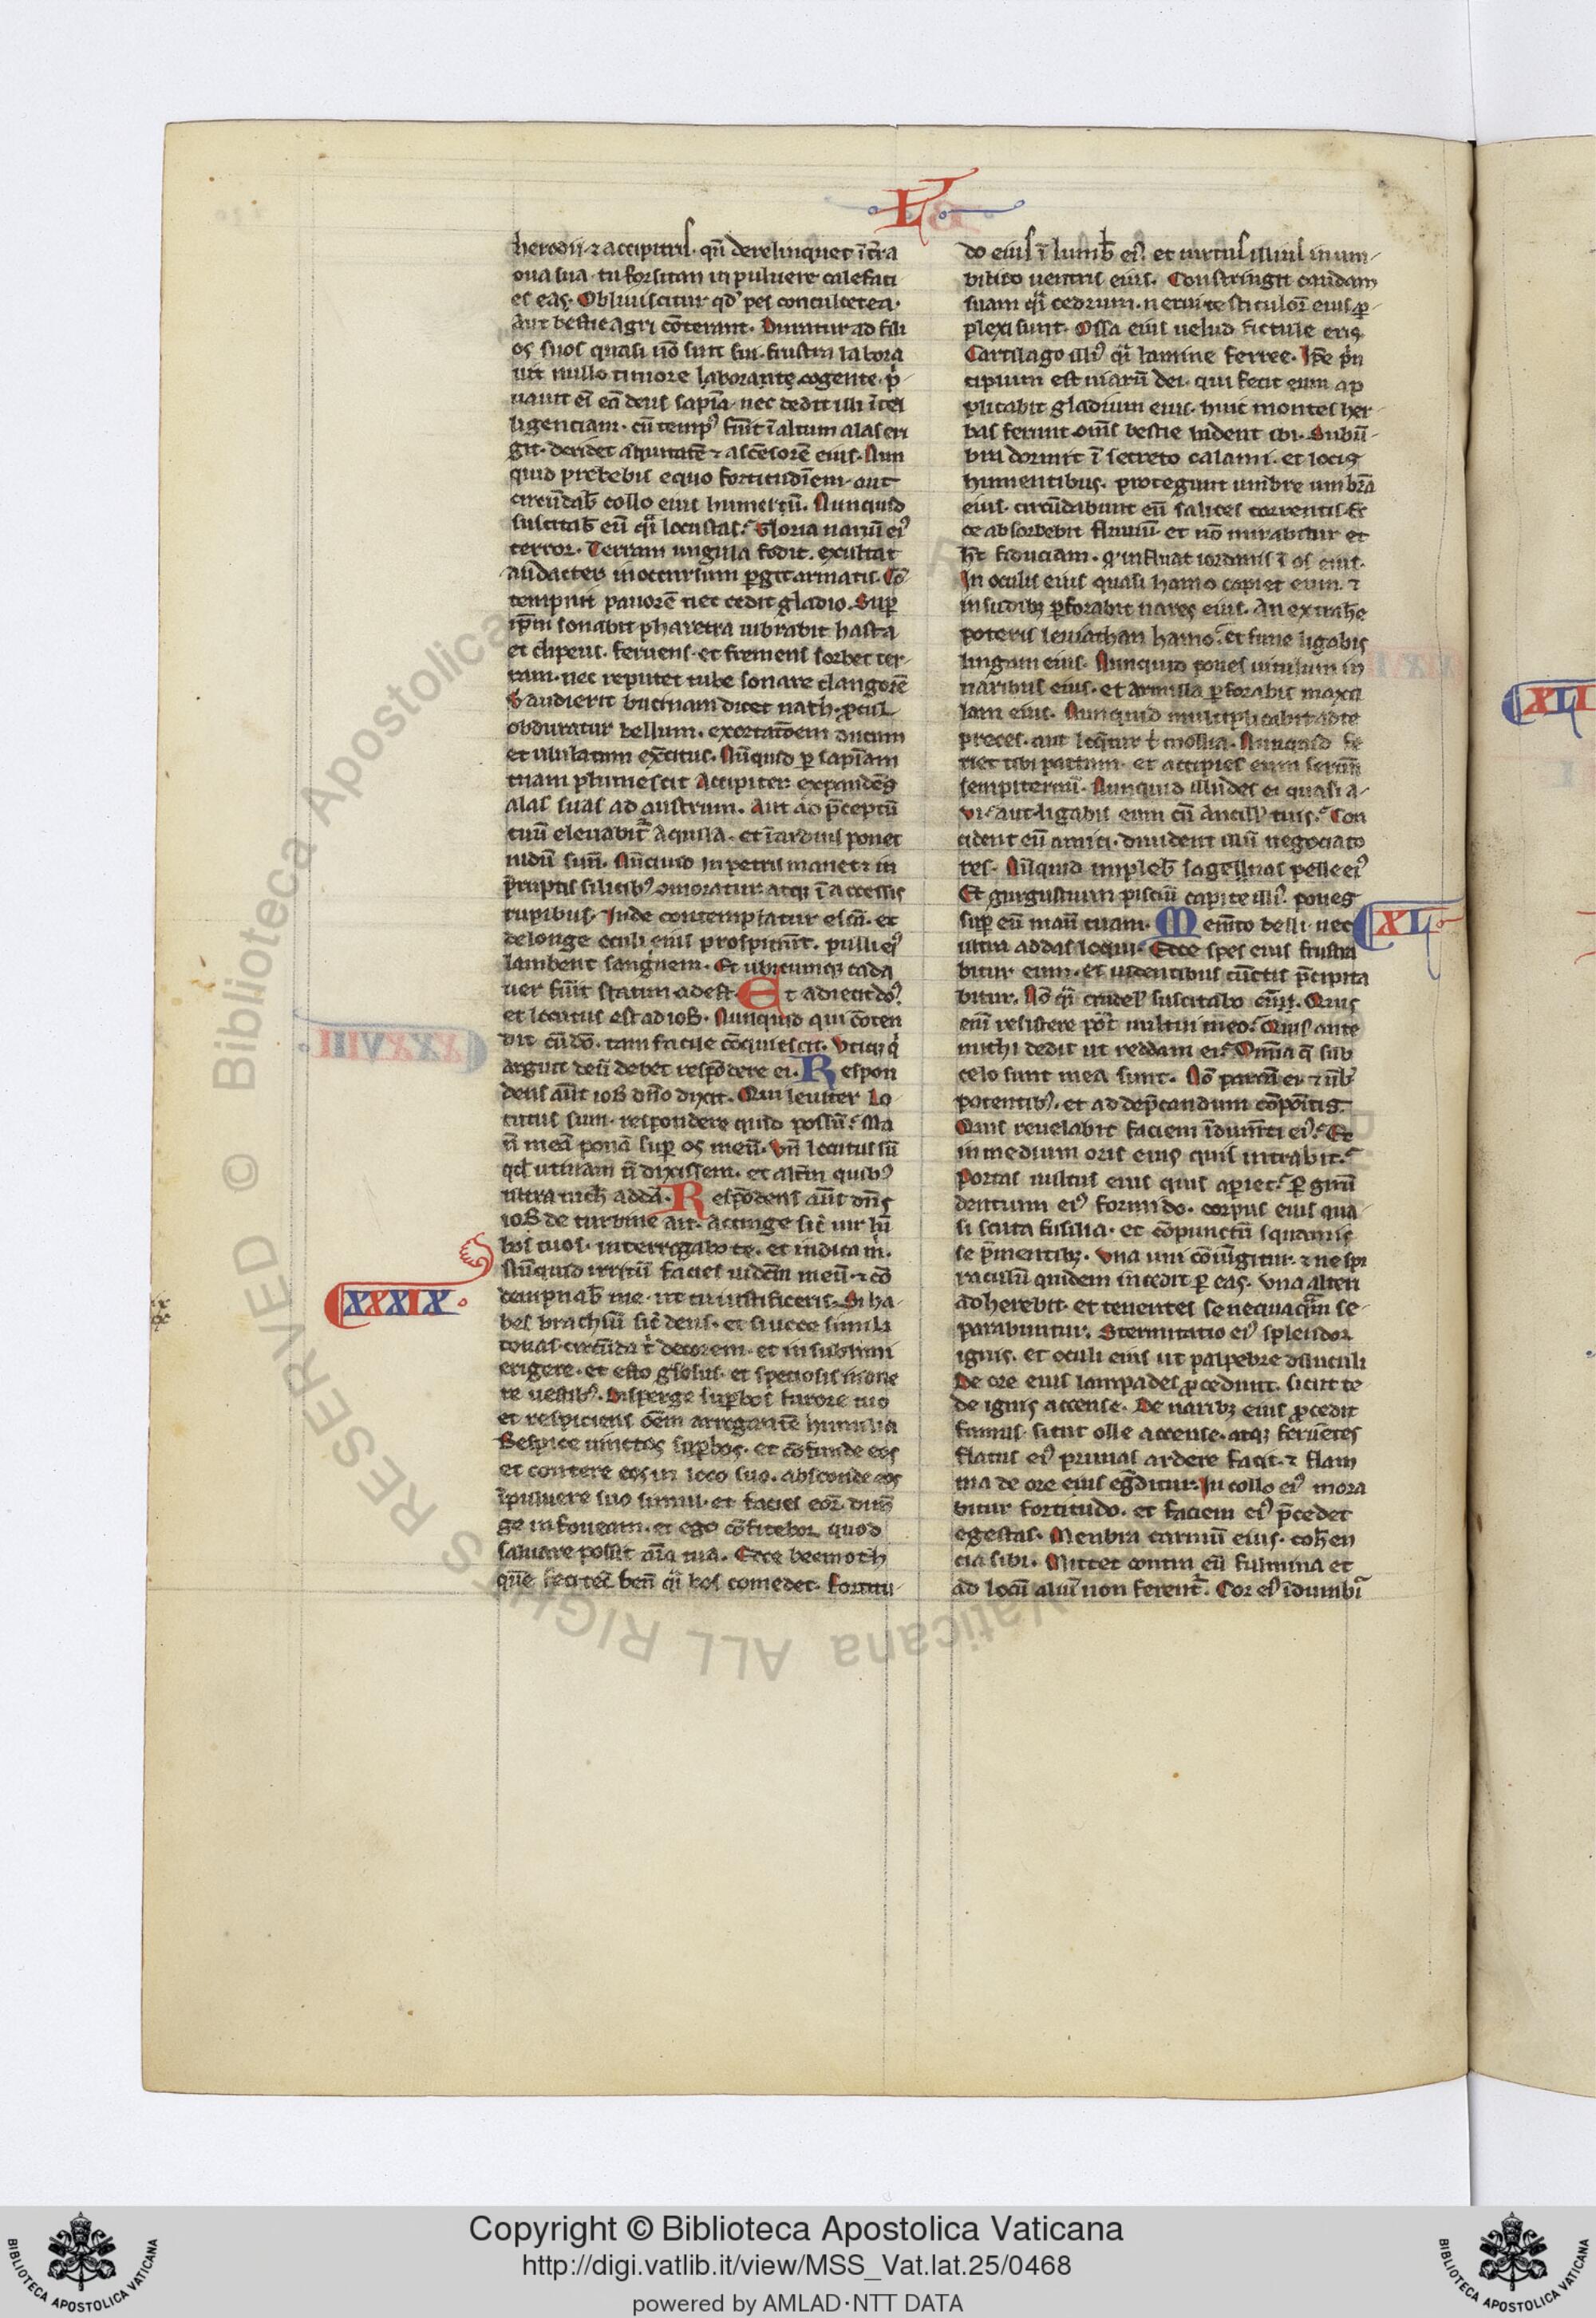 L
herodii ⁊ accipitris. qn̄ derelinquet ī tr̄a
oua sua. tu forsitan in puluere calefaci
es eas. Obliuiscitur qd̓ pes conculcet ea.
Aut bestie agri cōterant. Duratur ad fili
os suos quasi nō sint sui. frustra labora
uit nullo timore laborante cogente. p̄
uauit ei eā deus sapīa. nec dedit illi ītel
ligenciam. cū tempꝰ fu̅it ī altum alas eri
git. deridet ⁊ ascēsorē eius. Nun
quid prebebis equo fortitudīem. aut
circūdab̄ collo eius hinnitū. Nunquid
suscitab̄ eū q̄i locustas. Gloria nariū eiꝰ
terror. Terram ungula fodit. exultat
audacter in occursum ꝑgit armatis. Cō
tempnit pauorē nec cedit gladio. Suꝑ
ip̄m sonabit pharetra uibrabit hasta
et clipeus. feruens et fremens sorbet ter
ram. nec reputet tube sonare clangorē
audierit bucinam dicet uath. ꝓcul
odoratur bellum. exortatōem ducum
et ululatum ex̄citus. Nūquid ꝑ sapīam
tuam plumescit accipiter expandēs
alas suas ad austrum. Aut ad p̄ceptū
tuū eleuabit̄ aquila. et ī arduis ponet
nidū suū. in petris manet ⁊ in
p̄ruptis silicibꝰ 9moratur atqꝫ ī accessis
rupibus. Inde contemplatur escā. et
de longe oculi eius prospiciūt. pulli eiꝰ
lambent sanguinem. Et ubicumqꝫ cada
uer fu̅it statim adest. Et adiecit do̅.
et locutus est ad iob. Nunquid qui cōten
dit cū dō. tam facile cōquiescit. Vtiqꝫ q̓
arguit deū debet respōdere ei. Respon
dens aūt iob dn̄o dixit. Qui leuiter lo
cutus sum. respondere quid possū. Ma
nū meā ponā suꝑ os meū. Vnū locutus sū
qd̓ utinam n̄ dixissem. et altm̄ quibꝰ
ultra nich̄ addā. Respōdens aūt dn̄s
iob de turbine ait. Accinge sic̄ uir lū
bos tuos. interrogabo te. et indica m̓.
Nūquid irritū facies iudiciū meū. ⁊ cō
dempnab̄ me. ut tu iustificeris. Si ha
XXXIX
bes brachiū sic̄ deus. et si uoce simili
tonas. circūda t̓ decorem. et in sublimi
erigere. et esto gl̓osus. et speciosis indue
re uestibꝰ. Disperge suꝑbos furore tuo
et respiciens oēm arrogantē humilia
Respice cunctos suꝑbos. et cōfunde eos
et contere eos in loco suo. absconde eos
ī puluere suo simul. et facies eoꝝ dim̄
ge in foueam. et ego cōfitebor quod
saluare possit dext̄a tua. Ecce beemoth
quē feci tecū fenū q̄i bos comedet. fortitu
do eius ī lumb̄ eiꝰ. et uirtus illius in um
bilico uentris eius. Constringit caudam
suam q̄i cedrum. nerui testiculoꝝ eius ꝑ
plexi sunt. Ossa eius uelud fistule eris
Cartilago illiꝰ q̄i lamine ferree. Ip̄e prin
cipium est uiarū dei. qui fecit eum ap
plicabit gladium eius. huic montes her
bas ferunt. om̄s bestie ludent ibi. Sub ū
bra dormit ī secreto calami. et locis
humentibus. protegunt umbre umbrā
eius. circūdabunt eū salices torrentis. Ec
ce absorbebit fluuiū. et nō mirabitur et
h̄t fiduciam. q̓ influat iordanis ī os eius.
In oculis eius quasi hamo capiet eum. ⁊
in sudibꝫ ꝑforabit nares eius. An extrah̄e
poteris leuiathan hamo. et fune ligabis
linguam eius. Nunquid pones circulum in
naribus eius. et armilla ꝑforabis maxil
lam eius. Nunquid multiplicabit ad te
preces. aut loq̄tur t̓ mollia. Nunquid fe
riet tibi pactum. et accipies eum seruū
sempiternū. Nunquid illudes ei quasi a
vi. aut ligabis eum cū ancill̓ tuis. Con
cident eū amici. diuident illū negociato
res. Nūquid impleb̄ sagenas pelle eiꝰ
Et gurgustium pisciū capite illiꝰ. pones
suꝑ eū manū tuam. Memēto belli. nec
XL
ultra addas loqui. Ecce spes eius frustra
bitur eum. et uidentibus cūctis p̄cipita
bitur. Nō q̄i crudel̓ suscitabo eum. Quis
enī resistere pōt uultui meo. Quis ante
michi dedit ut reddam ei. Omīa q̄ sub
celo sunt mea sunt. Nō parcā ei. ⁊ uerb̓
potentibꝰ. et ad dep̄candum cōpoītis.
Quis reuelabit faciem īdumēti eiꝰ. Et
in medium oris eius quis intrabit.
Portas uultus eius quis aperiet. ꝑ girū
dentium eiꝰ formido. corpus eius qua
si scuta fusilia. et cōpunctū squamis
se p̄mentibꝫ. Vna uni cōiūgitur. ⁊ ne spi
raculū quidem incedit ꝑ eas. Vna alteri
adherebit. et tenentes se nequaquā se
parabuntur. Sternutatio eiꝰ splendor
ignis. et oculi eius ut palpebre diluculi
De ore eius lampades ꝓcedunt. sicut te
de ignis accense. De naribꝫ eius ꝓcedit
fumus. sicut olle accense. atqꝫ feruētes
flatus eiꝰ prunas ardere facit. ⁊ flam
ma de ore eius eg̓ditur. In collo eiꝰ mora
bitur fortitudo. et faciem eiꝰ p̄cedet
egestas. Menbra carniū eius. coh̄en
cia sibi. Mittet contra eū fulmina et
ad locū aliū non ferent̄. Cor eiꝰ īdurabi
XLI
Copyright © Biblioteca Apostolica Vaticana
http://digi.vatlib.it/view/MSS_Vat.lat.25/0468
powered by AMLAD·NTT DATA
BIBLIOTECA APOSTOLICA VATICANA
BIBLIOTECA APOSTOLICA VATICANA
© Biblioteca Apostolica Vaticana ALL RIGHTS RESERVED